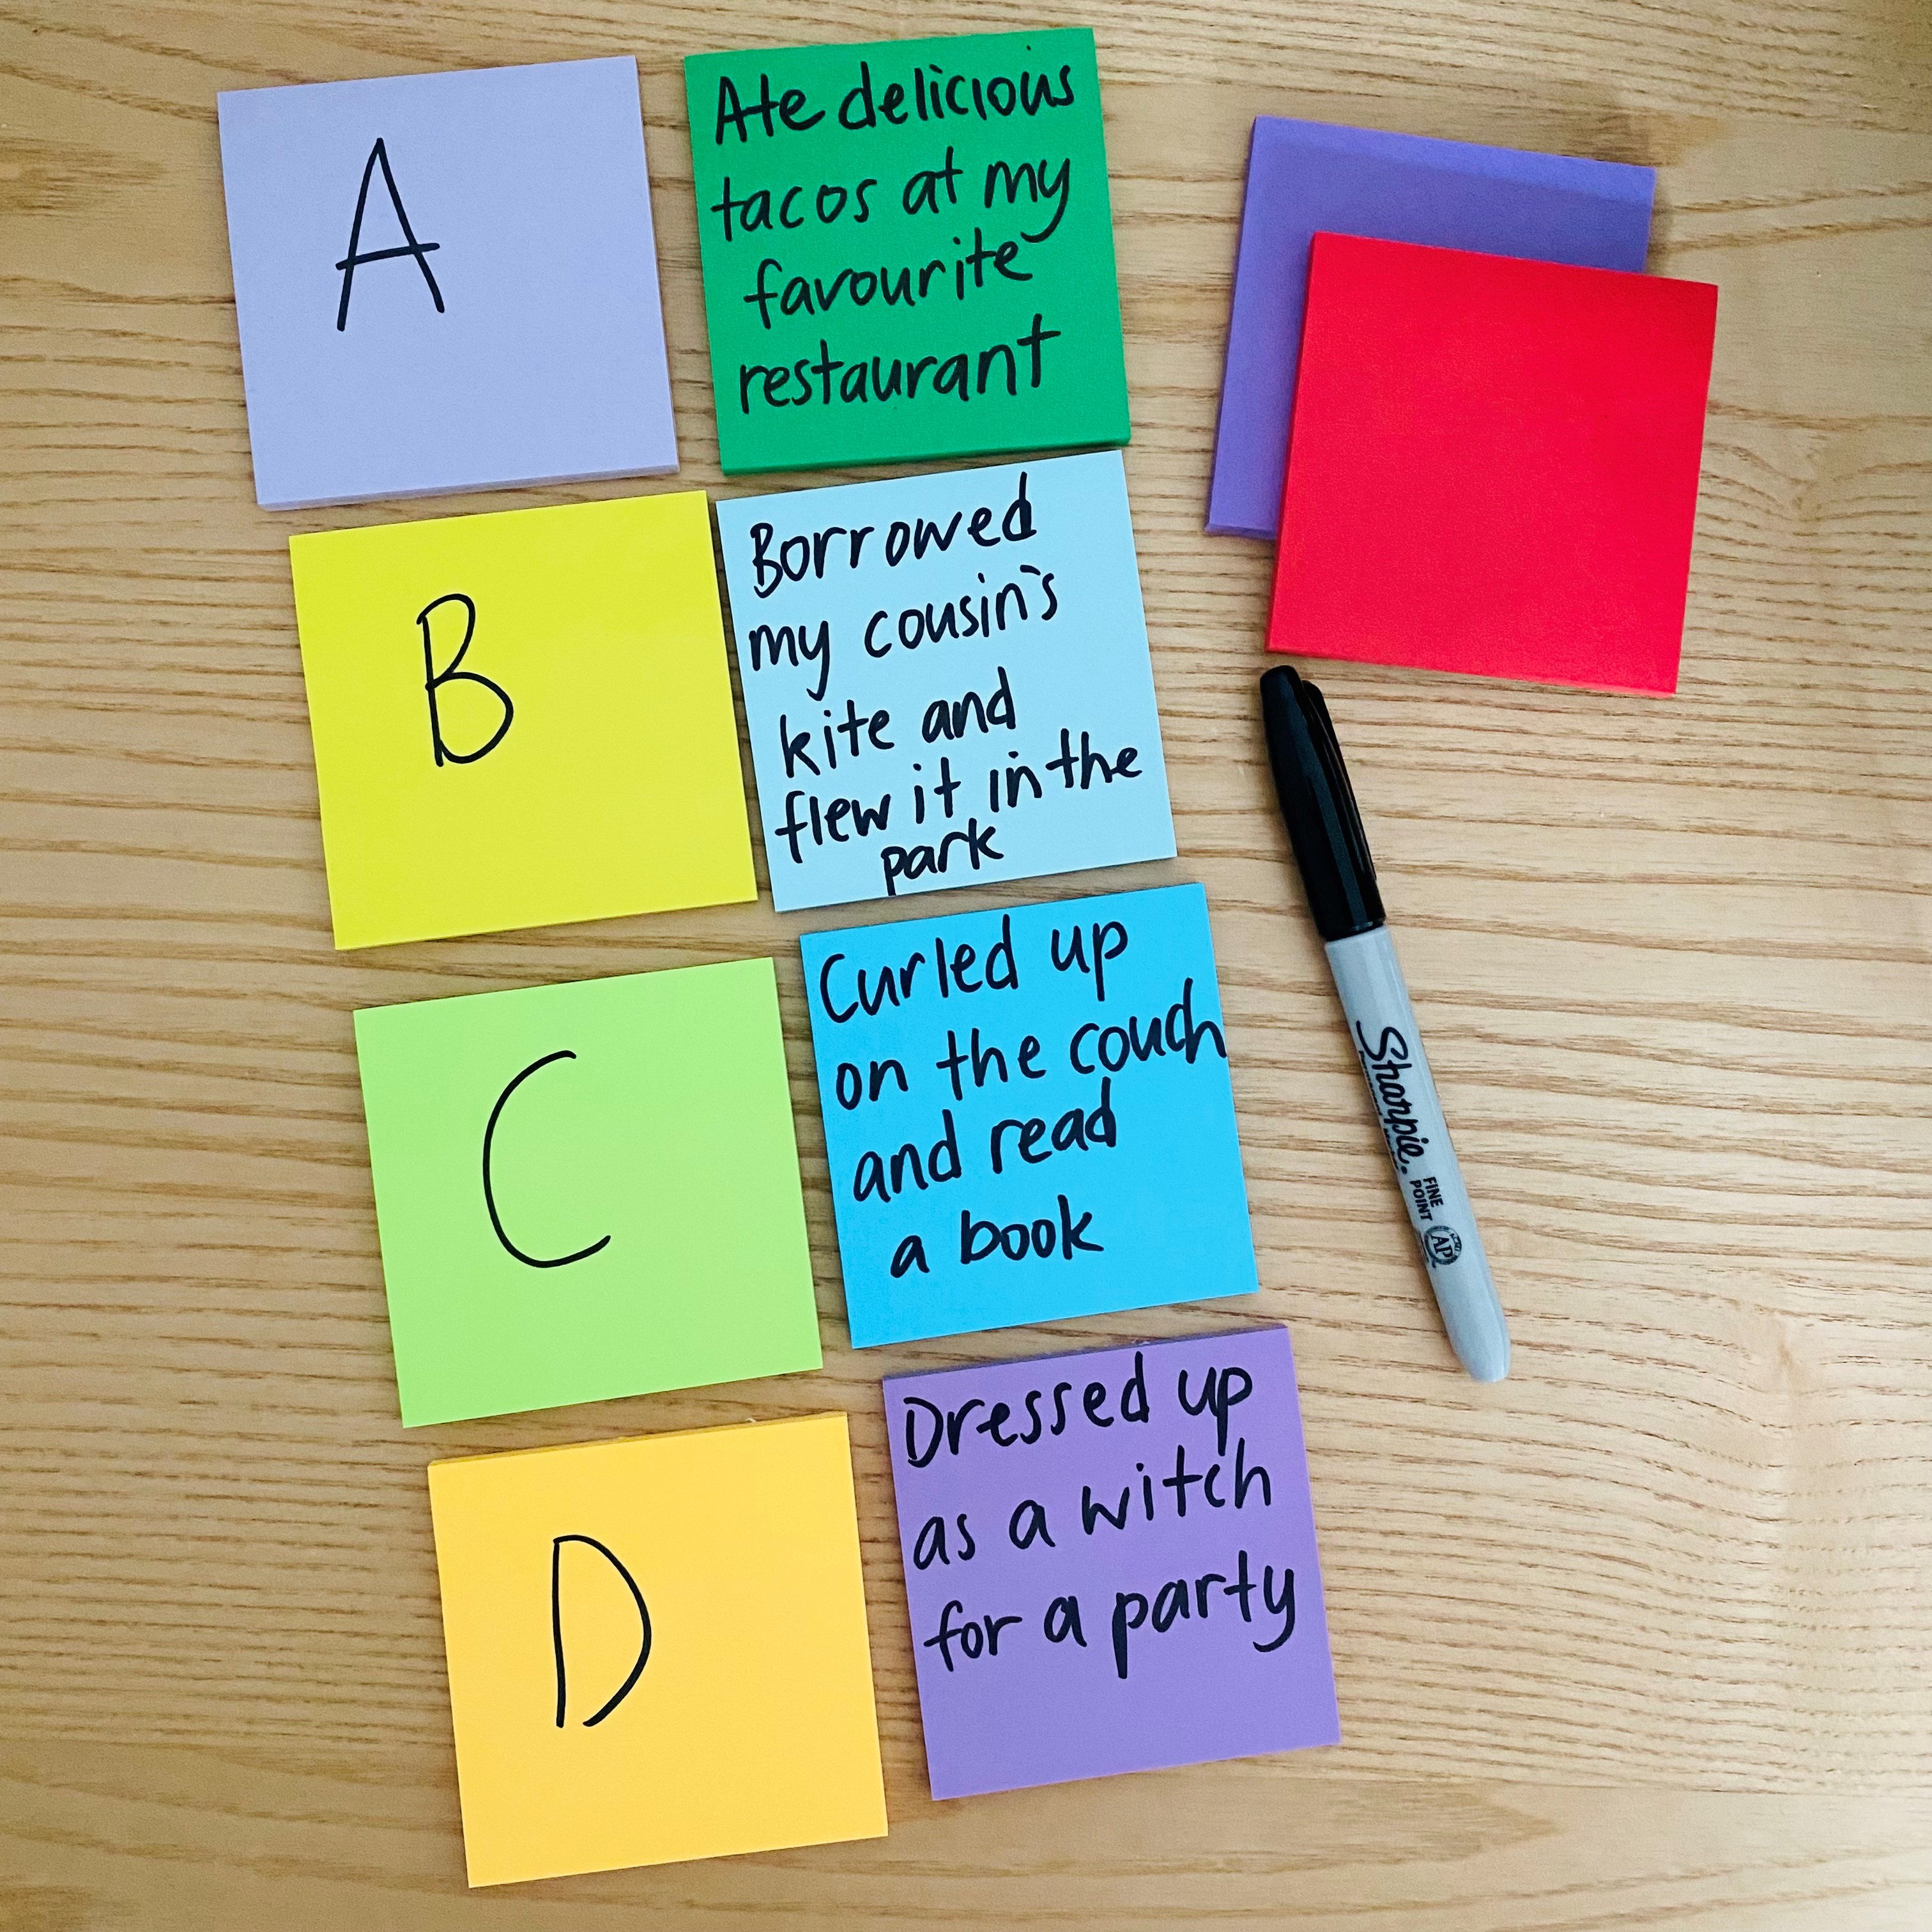 A
Ate delicious
tacos at my
favourite
restaurant
B
Borrowed
my cousin's
kite and
flew it in the
park
C
Curled up
on the couch
and read
a book
D
Dressed up
as a witch
for a party
Sharpie.
FINE
POINT
AP